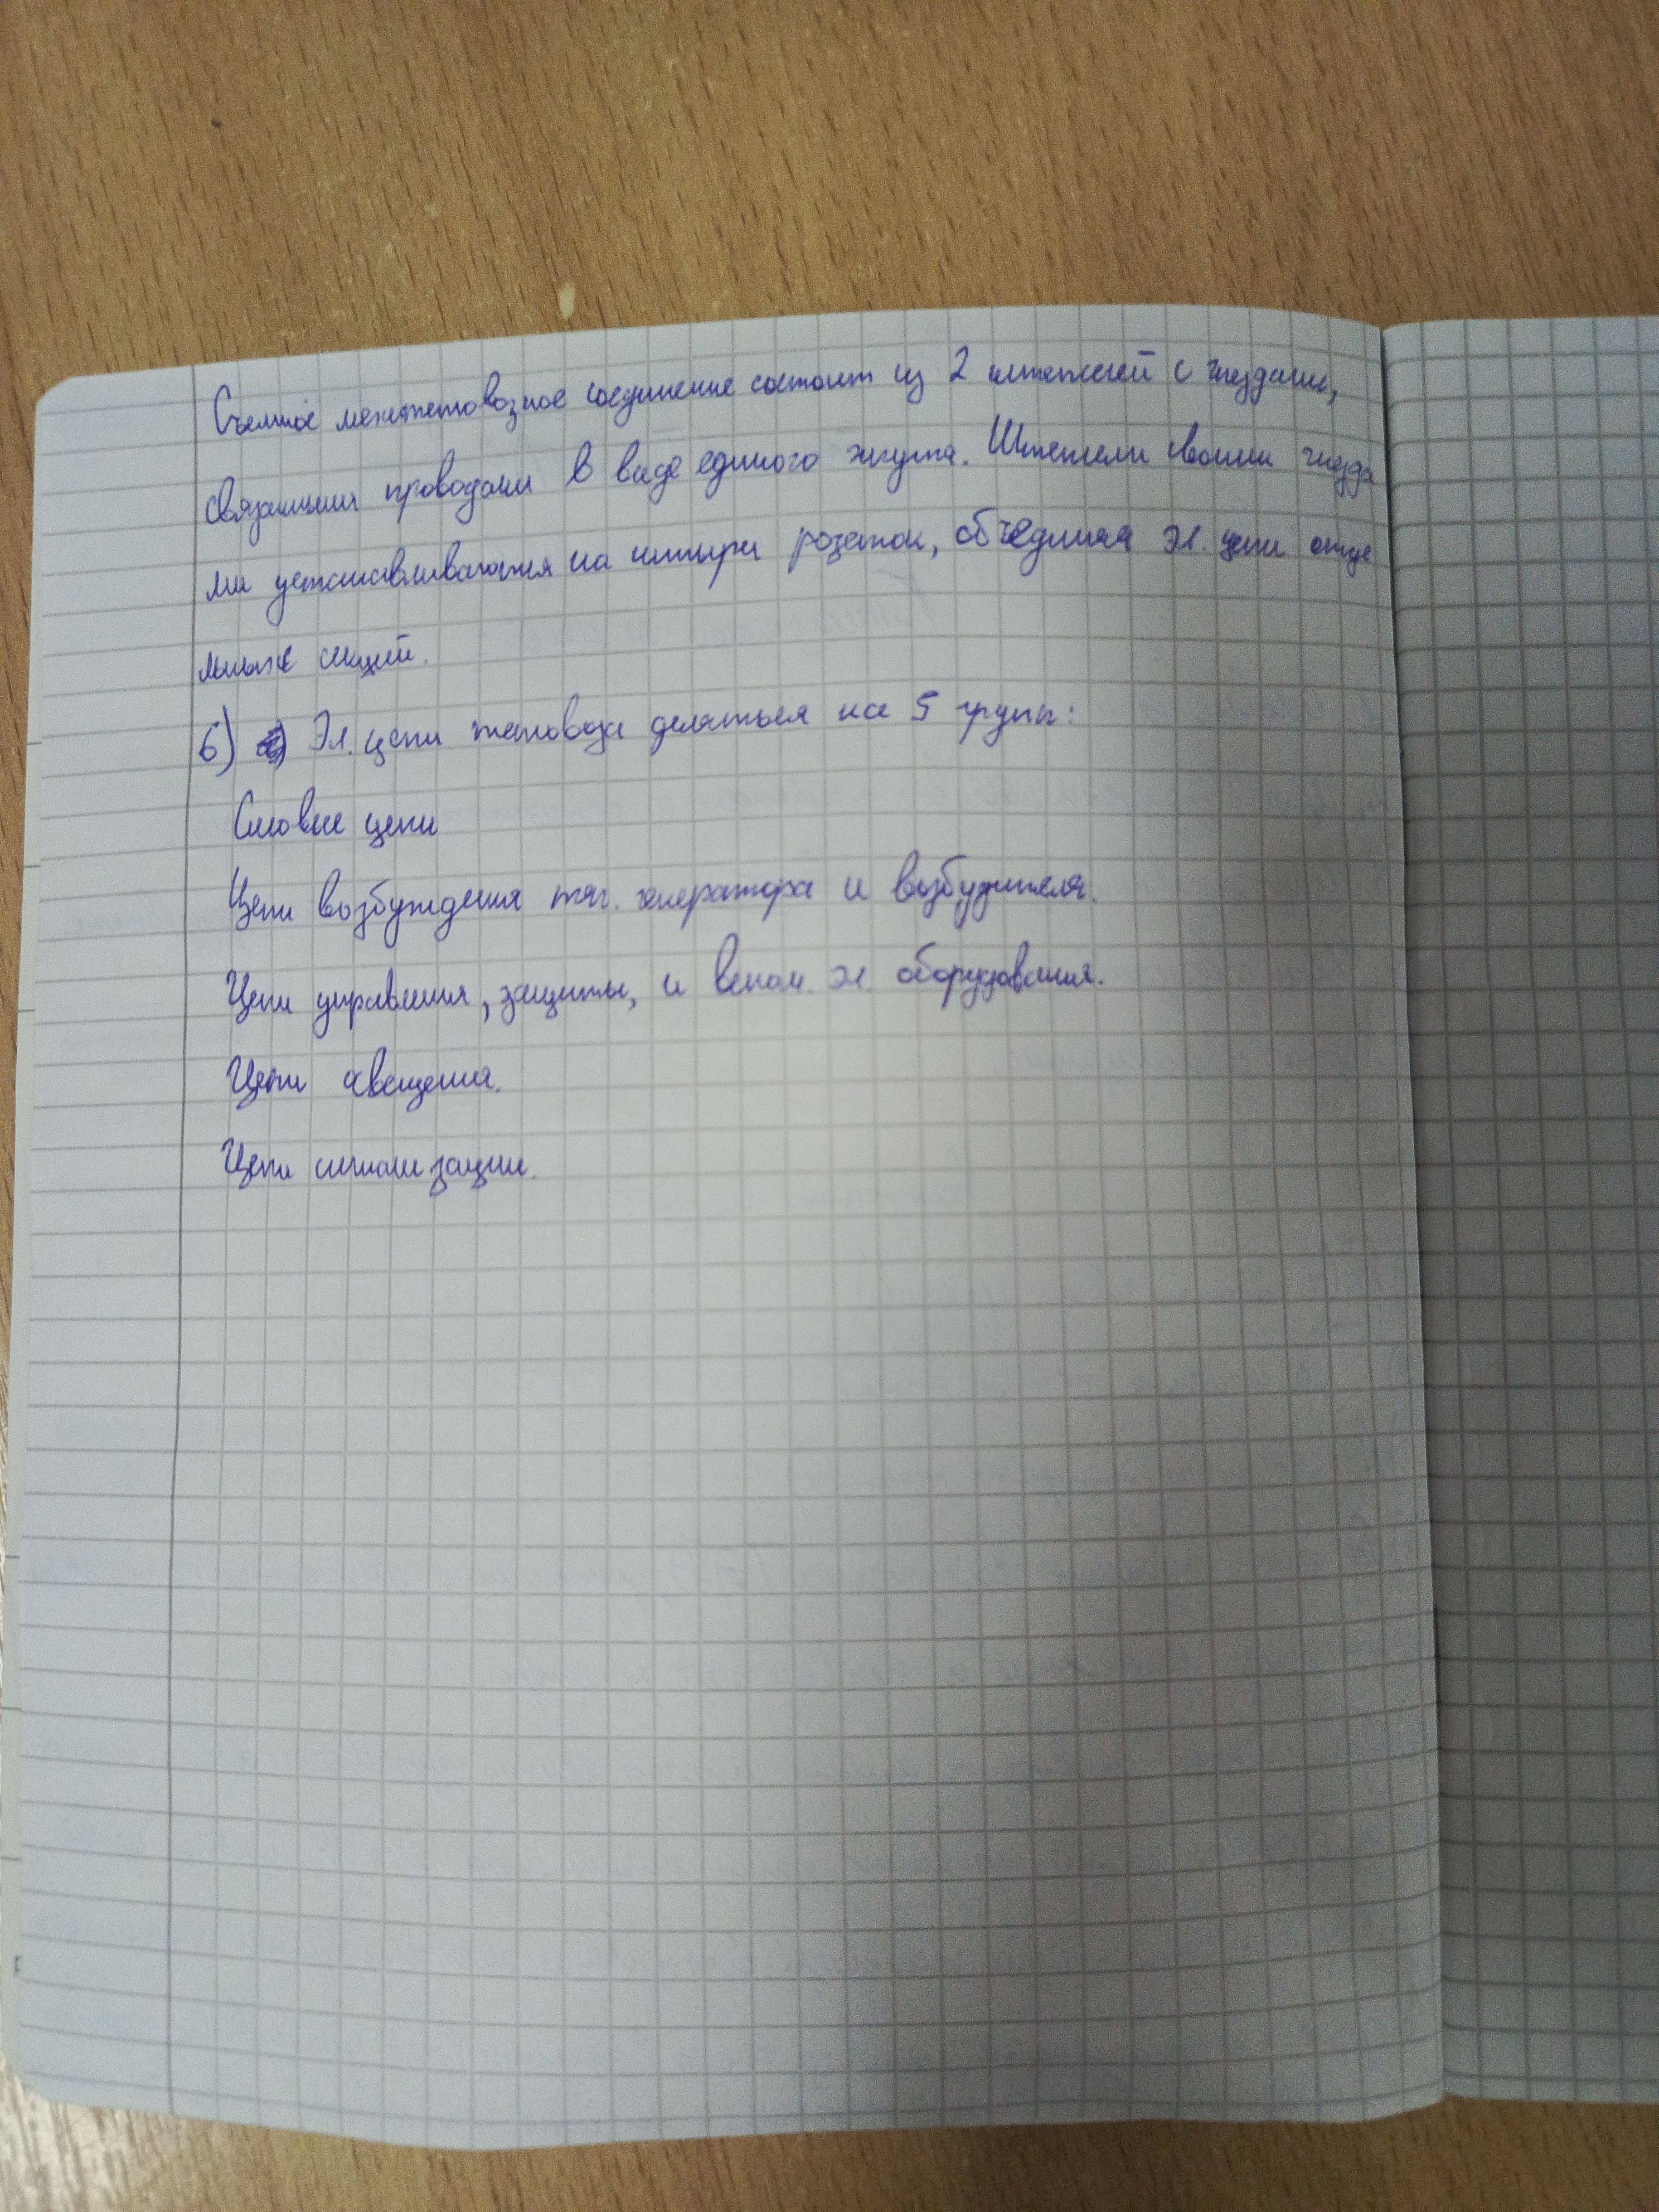 Съемное межтепловозное соединение состоит из 2 штепселей с гнездами,
связанными проводами в виде единого жгута. Штепсели своими гнезда
ми устанавливаются на штыри розеток, объединяя эл. цепи отде
льных секций.
6) Эл. цепи тепловоза деляться на 5 групп:
Силовые цепи
Цепи возбуждения тяг. генератора и возбудителя.
Цепи управления, защиты, и вспом. эл. оборудования.
Цепи освещения.
Цепи сигнализации.